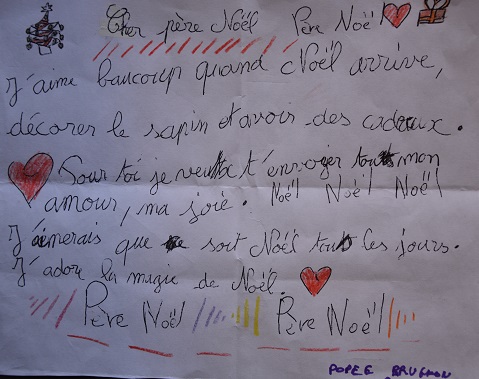 Cher père Noël Père Noël
J'aime baucoup quand Noël arrive,
décorer le sapin et avoir des cadeaux.
Pour toi je veux t'envoyer tout mon
amour, ma joie. Noël Noël Noël
J'aimerais que ce soit Noël tout les jours.
J'adore la magie de Noël.
Père Noël Père Noël